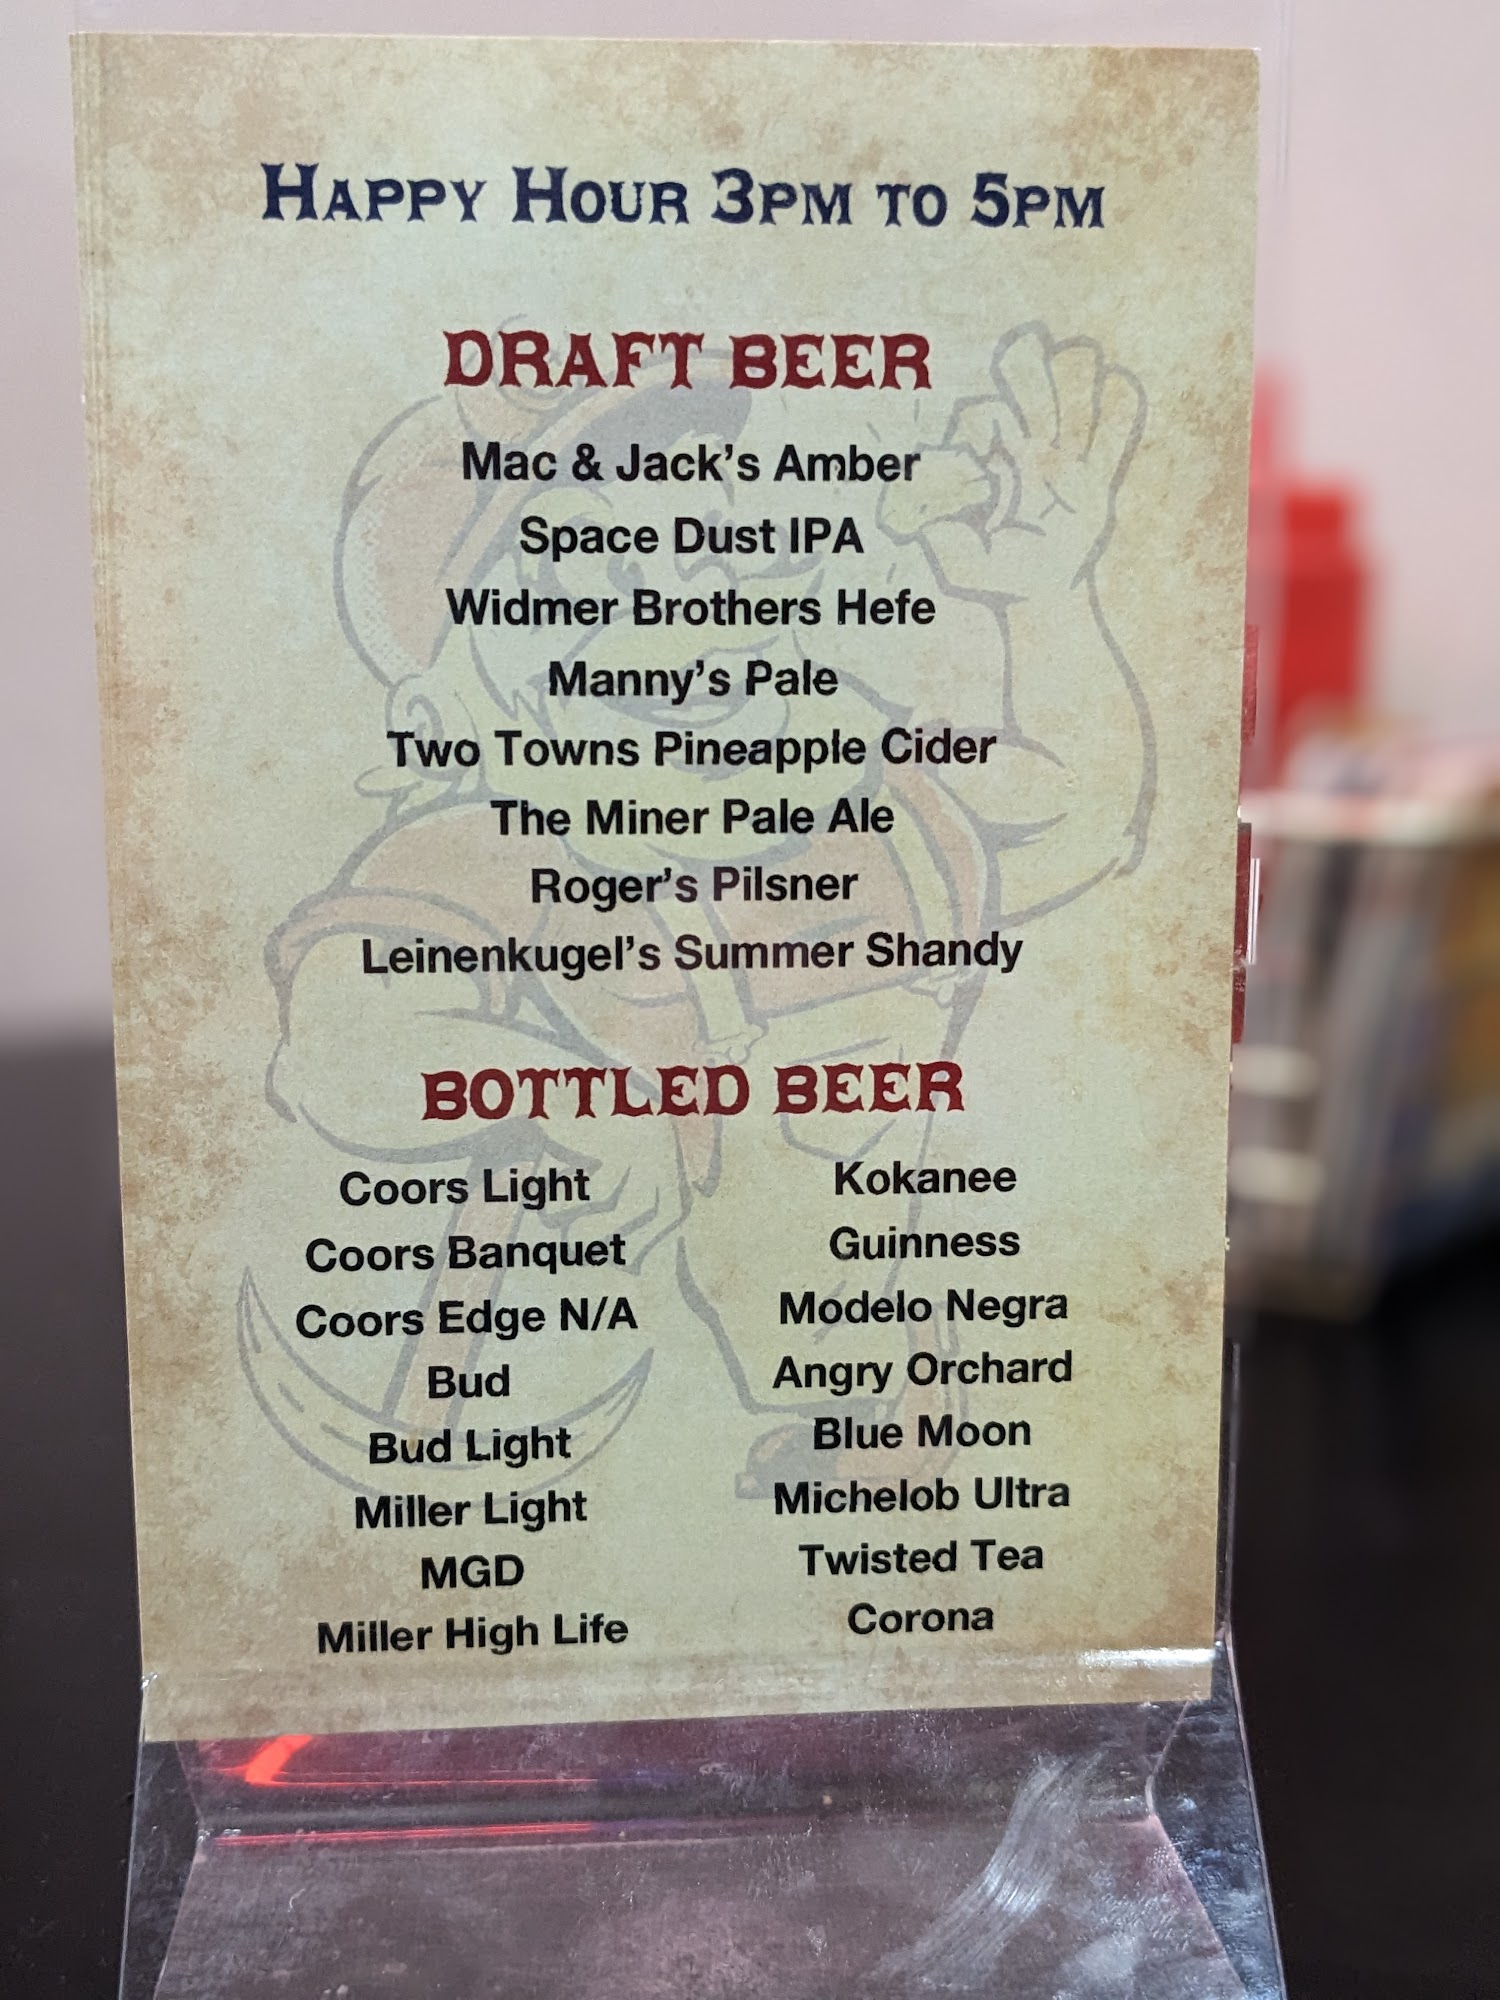 Happy Hour 3pm to 5pm
DRAFT BEER
Mac & Jack's Amber
Space Dust IPA
Widmer Brothers Hefe
Manny's Pale
Two Towns Pineapple Cider
The Miner Pale Ale
Roger's Pilsner
Leinenkugel's Summer Shandy
BOTTLED BEER
Coors Light
Coors Banquet
Coors Edge N/A
Bud
Bud Light
Miller Light
MGD
Miller High Life
Kokanee
Guinness
Modelo Negra
Angry Orchard
Blue Moon
Michelob Ultra
Twisted Tea
Corona